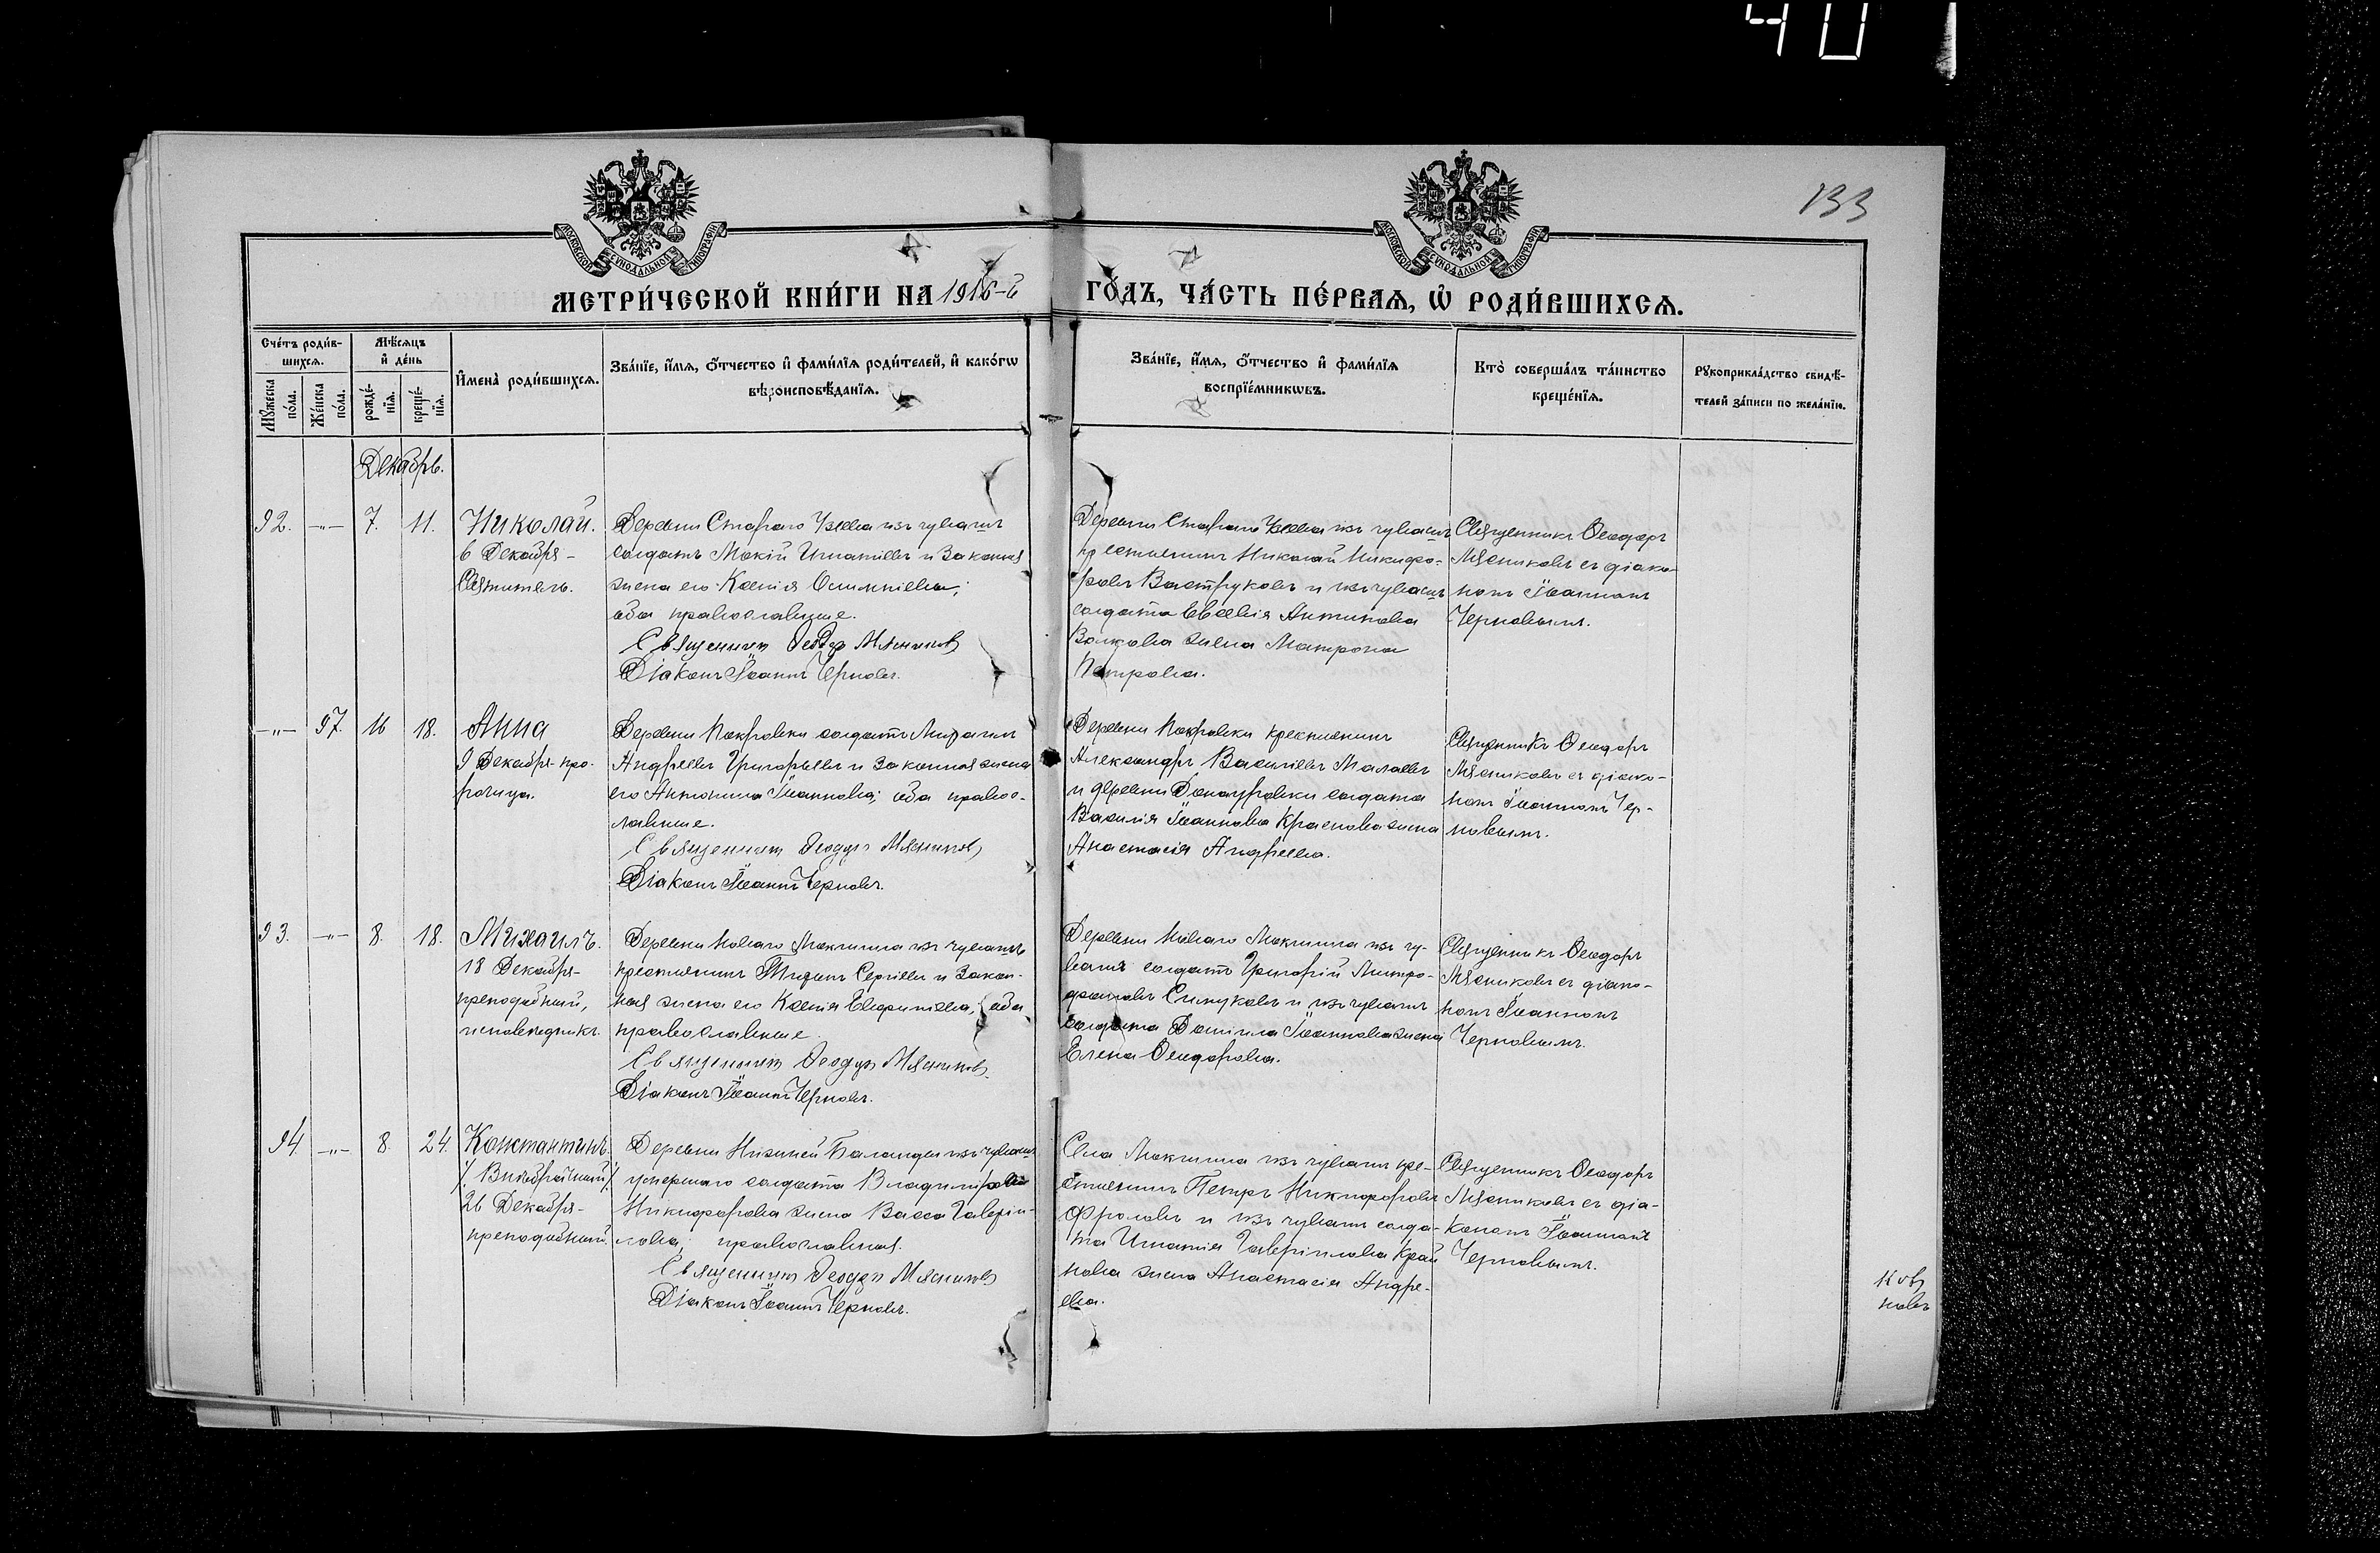 40
133
МОСКОВСКОЙ СѴНОДАЛЬНОЙ ТИПОГРАФІИ
МОСКОВСКОЙ СѴНОДАЛЬНОЙ ТИПОГРАФІИ
МЕТРИ́ЧЕСКОЙ КНИ́ГИ НА 1916-й ГО́ДЪ, ЧА́СТЬ ПЕ́РВАѦ, Ѽ РОДИ́ВШИХСѦ.
Сче́тъ роди́в-
шихсѧ.
Мꙋ́жеска по́ла.
Же́нска по́ла.
Мѣ́сѧцъ
и҆ де́нь
рожде́-
нїѧ.
креще́-
нїѧ.
И҆мена̀ роди́вшихсѧ.
Зва́нїе, и҆́мѧ, ѻ҆́тчество и҆ фами́лїѧ роди́телей, и҆ како́гѡ
вѣроисповѣ́данїѧ.
Зва́нїе, и҆́мѧ, ѻ҆́тчество и҆ фами́лїѧ
воспрїе́мникѡвъ.
Кто̀ соверша́лъ та́инство
креще́нїѧ.
Рꙋкоприкла́дство свидѣ́-
телей за́писи по жела́нїю.
Декабрь.
92. -"- 7. 11.
Николай.
6 Декабря-
Святитель.
Деревни Стараго Узеева изъ чувашъ
солдатъ Мокій Игнатіевъ и законная
жена его Ксенія Олимпіева;
оба православные.
Священникъ Ѳеодоръ Мясниковъ
Діаконъ Іоаннъ Черновъ.
Деревни Стараго Узеева изъ чувашъ
крестьянинъ Николай Никифо-
ровъ Вастру­ковъ и изъ чувашъ
солдата Евсевія Антипова
Волкова жена Матрона
Петрова.
Священникъ Ѳеодоръ
Мясниковъ съ діако-
номъ Іоанномъ
Черновымъ.
-"- 97. 16 18.
Анна
9 Декабря-про-
рочица.
Деревни Покровки солдатъ
Андреевъ Григорьевъ и законная жена
его Антонина Іоаннова; оба правос-
лавные.
Священникъ Ѳеодоръ Мясниковъ
Діаконъ Іоаннъ Черновъ.
Деревни Покровки крестьянинъ
Александръ Василіевъ Малаевъ
и деревни солдата
Василія Іоаннова Краснова жена
Анастасія Андреева.
Священникъ Ѳеодоръ
Мясниковъ съ діако-
номъ Іоанномъ Чер-
новымъ.
93. -"- 8. 18.
Михаилъ.
18 Декабря-
преподобный,
исповедникъ.
Деревни Новаго Мокшина изъ чувашъ
крестьянинъ Сергіевъ и закон-
ная жена его Ксенія Евфиміева; оба
православные
Священникъ Ѳеодоръ Мясниковъ.
Діаконъ Іоаннъ Черновъ.
Деревни Новаго Мокшина изъ чу-
вашъ солдатъ Григорій Митро-
фановъ и изъ чувашъ
солдата Даніила Іоаннова жена
Елена Ѳеодорова.
Священникъ Ѳеодоръ
Мясниковъ съ діако-
номъ Іоанномъ
Черновымъ.
94. -"- 8. 24.
Константинъ.
/. Внебрачный./
26 Декабря-
преподобный.
Деревни Нижней Баланды изъ чувашъ
умершаго солдата Владиміра
Никифорова жена Васса Гавріи-
лова; православная.
Священникъ Ѳеодоръ Мясниковъ
Діаконъ Іоаннъ Черновъ.
Села Мокшина изъ чувашъ кре-
стьянинъ Петръ Никифоровъ
Фроловъ и изъ чувашъ солда-
та Игнатія Гавріилова Край
нова жена Анастасія Андре-
ева.
Священникъ Ѳеодоръ
Мясниковъ съ діа-
кономъ Іоанномъ
Черновымъ.